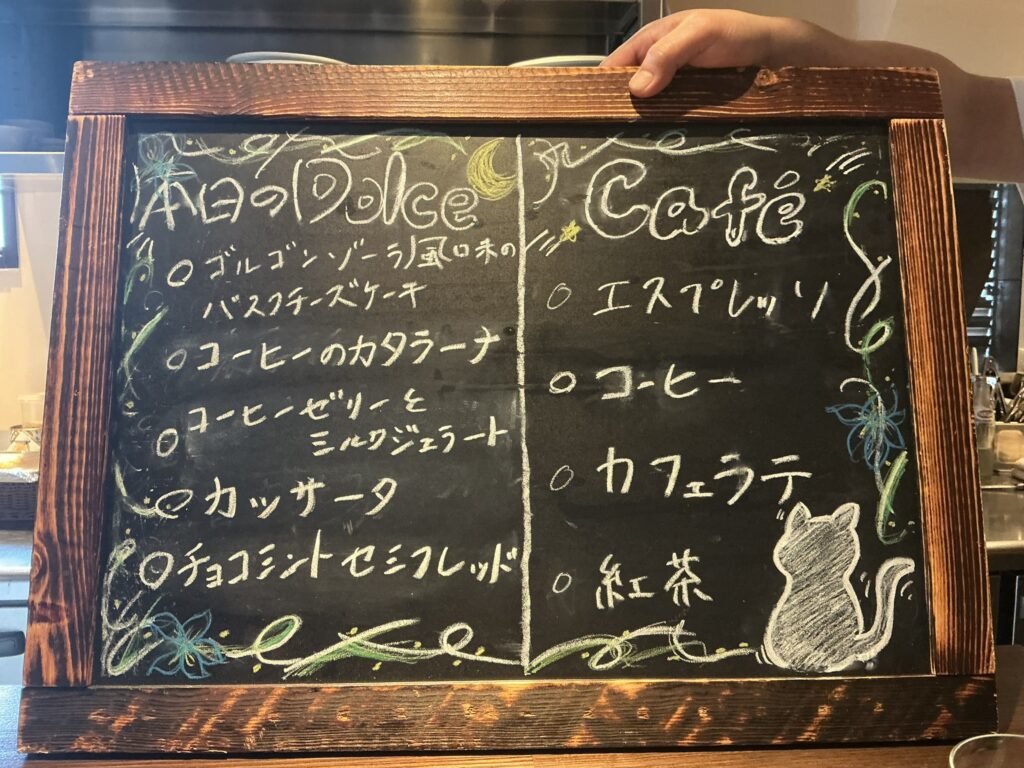 本日のDolce
○ ゴルゴンゾーラ風味の
バスクチーズケーキ
○ コーヒーのカタラーナ
○ コーヒーゼリーと
ミルクジェラート
○ カッサータ
○ チョコミントセミフレッド
Café
○ エスプレッソ
○ コーヒー
○ カフェラテ
○ 紅茶